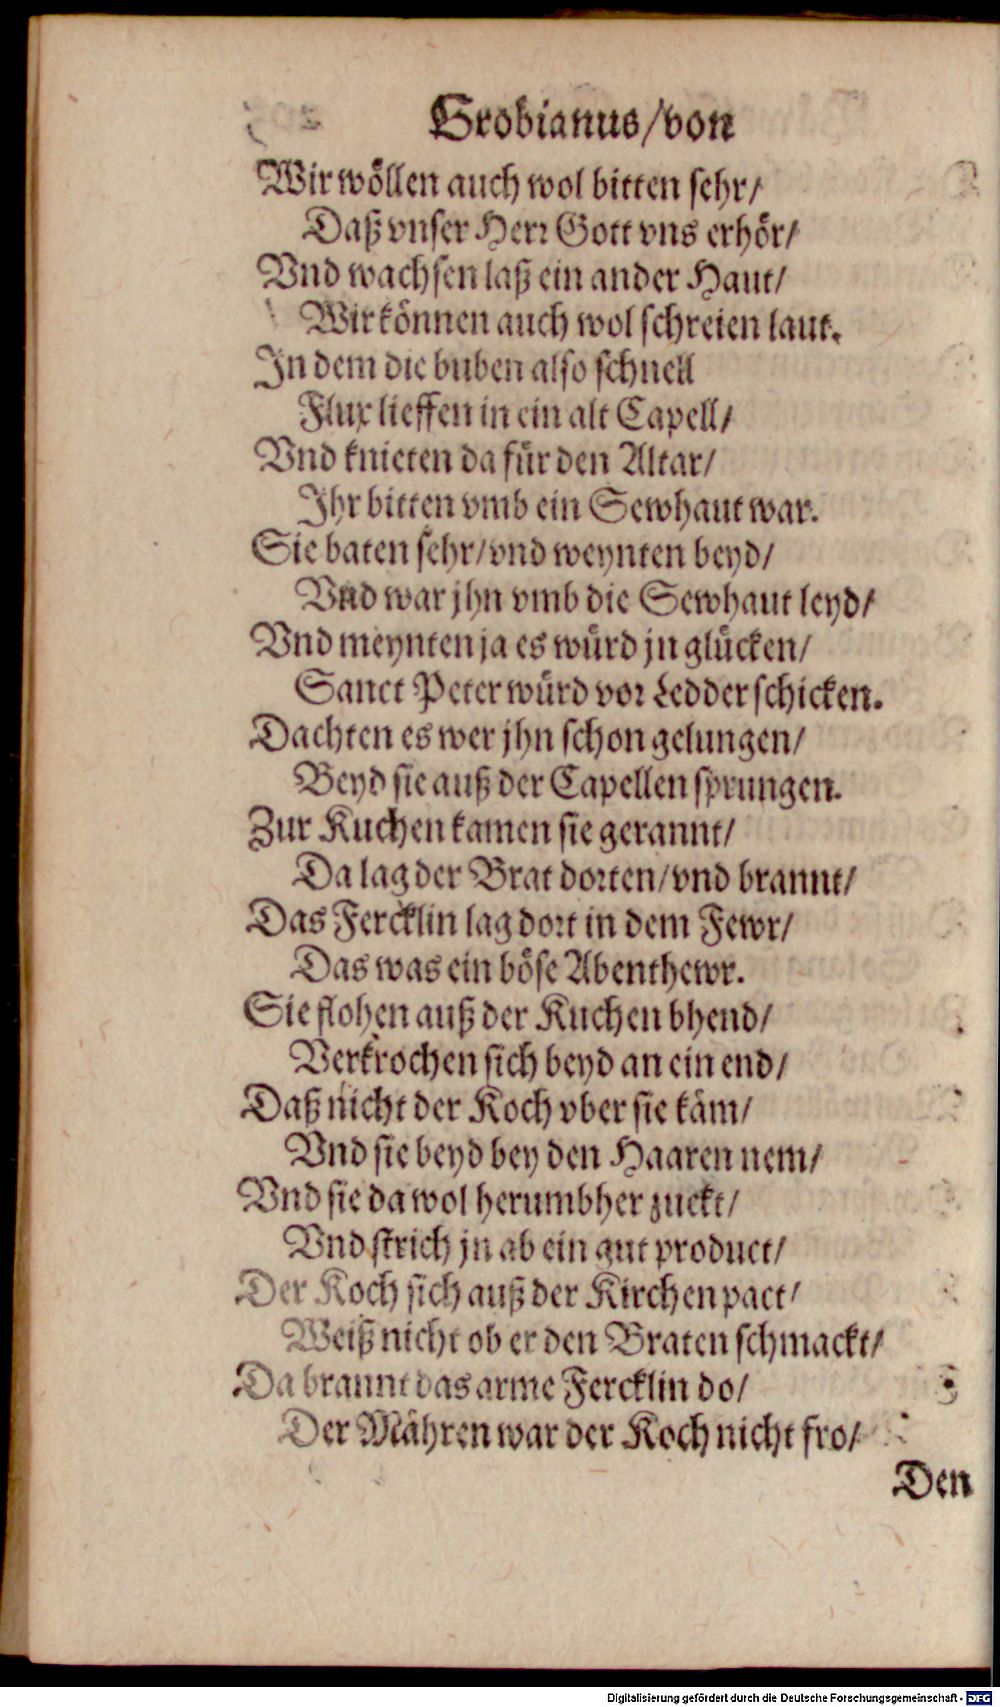 Grobianus/von
Wir wöllen auch wol bitten sehr/
Daß vnser Herr Gott vns erhör/
Vnd wachsen laß ein ander Haut/
Wir können auch wol schreien laut.
In dem die buben also schnell
Flux lieffen in ein alt Capell/
Vnd knieten da für den Altar/
Ihr bitten vmb ein Sewhaut war.
Sie baten sehr/vnd weynten beyd/
Vnd war jhn vmb die Sewhaut leyd/
Vnd meynten ja es würd jn glücken/
Sanct Peter würd vor Ledder schicken.
Dachten es wer jhn schon gelungen/
Beyd sie auß der Capellen sprungen.
Zur Kuchen kamen sie gerannt/
Da lag der Brat dorten/vnd brannt/
Das Fercklin lag dort in dem Fewr/
Das was ein böse Abenthewr.
Sie flohen auß der Kuchen bhend/
Verkrochen sich beyd an ein end/
Daß nicht der Koch vber sie käm/
Vnd sie beyd bey den Haaren nem/
Vnd sie da wol herumbher zuckt/
Vnd strich jn ab ein gut product/
Der Koch sich auß der Kirchen pact/
Weiß nicht ob er den Braten schmackt/
Da brannt das arme Fercklin do/
Der Mähren war der Koch nicht fro/
Den
Digitalisierung gefördert durch die Deutsche Forschungsgemeinschaft - DFG